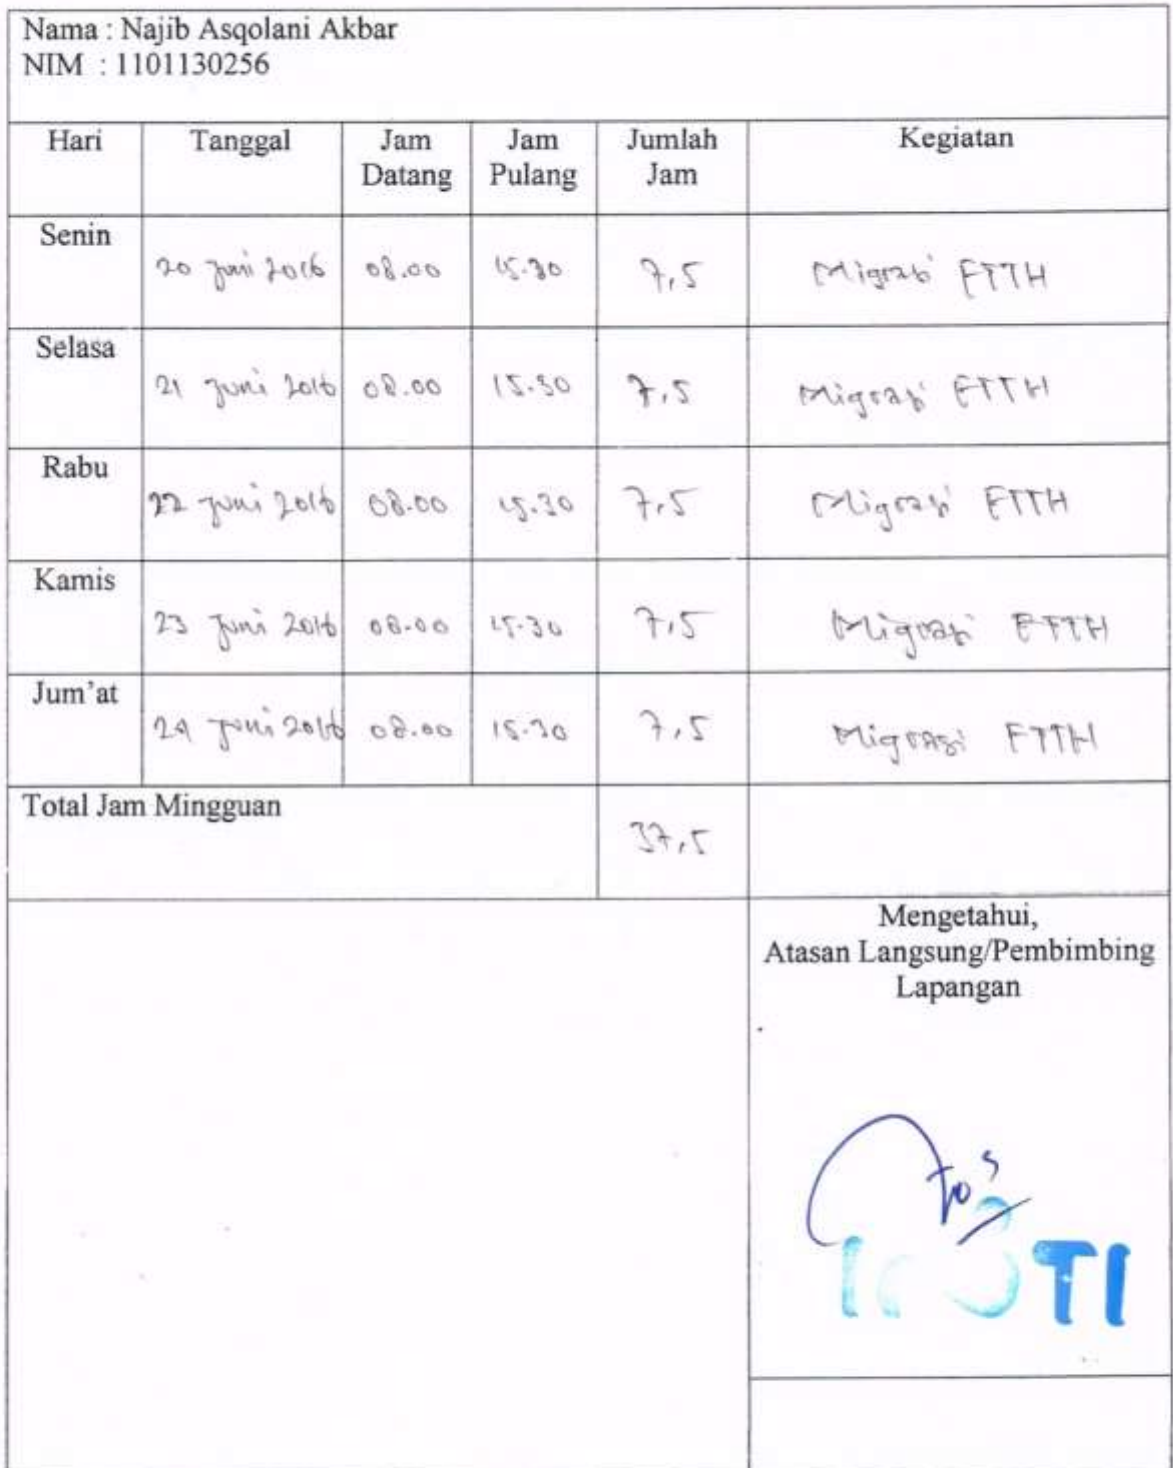 Nama : Najib Asqolani Akbar
NIM : 1101130256
Hari Tanggal Jam Datang Jam Pulang Jumlah Jam Kegiatan
Senin 20 Juni 2016 08.00 15.30 7,5 Migrasi FTTH
Selasa 21 Juni 2016 08.00 15.30 7,5 Migrasi FTTH
Rabu 22 Juni 2016 08.00 15.30 7,5 Migrasi FTTH
Kamis 23 Juni 2016 08.00 15.30 7,5 Migrasi FTTH
Jum'at 24 Juni 2016 08.00 15.30 7,5 Migrasi FTTH
Total Jam Mingguan 37,5
Mengetahui,
Atasan Langsung/Pembimbing
Lapangan